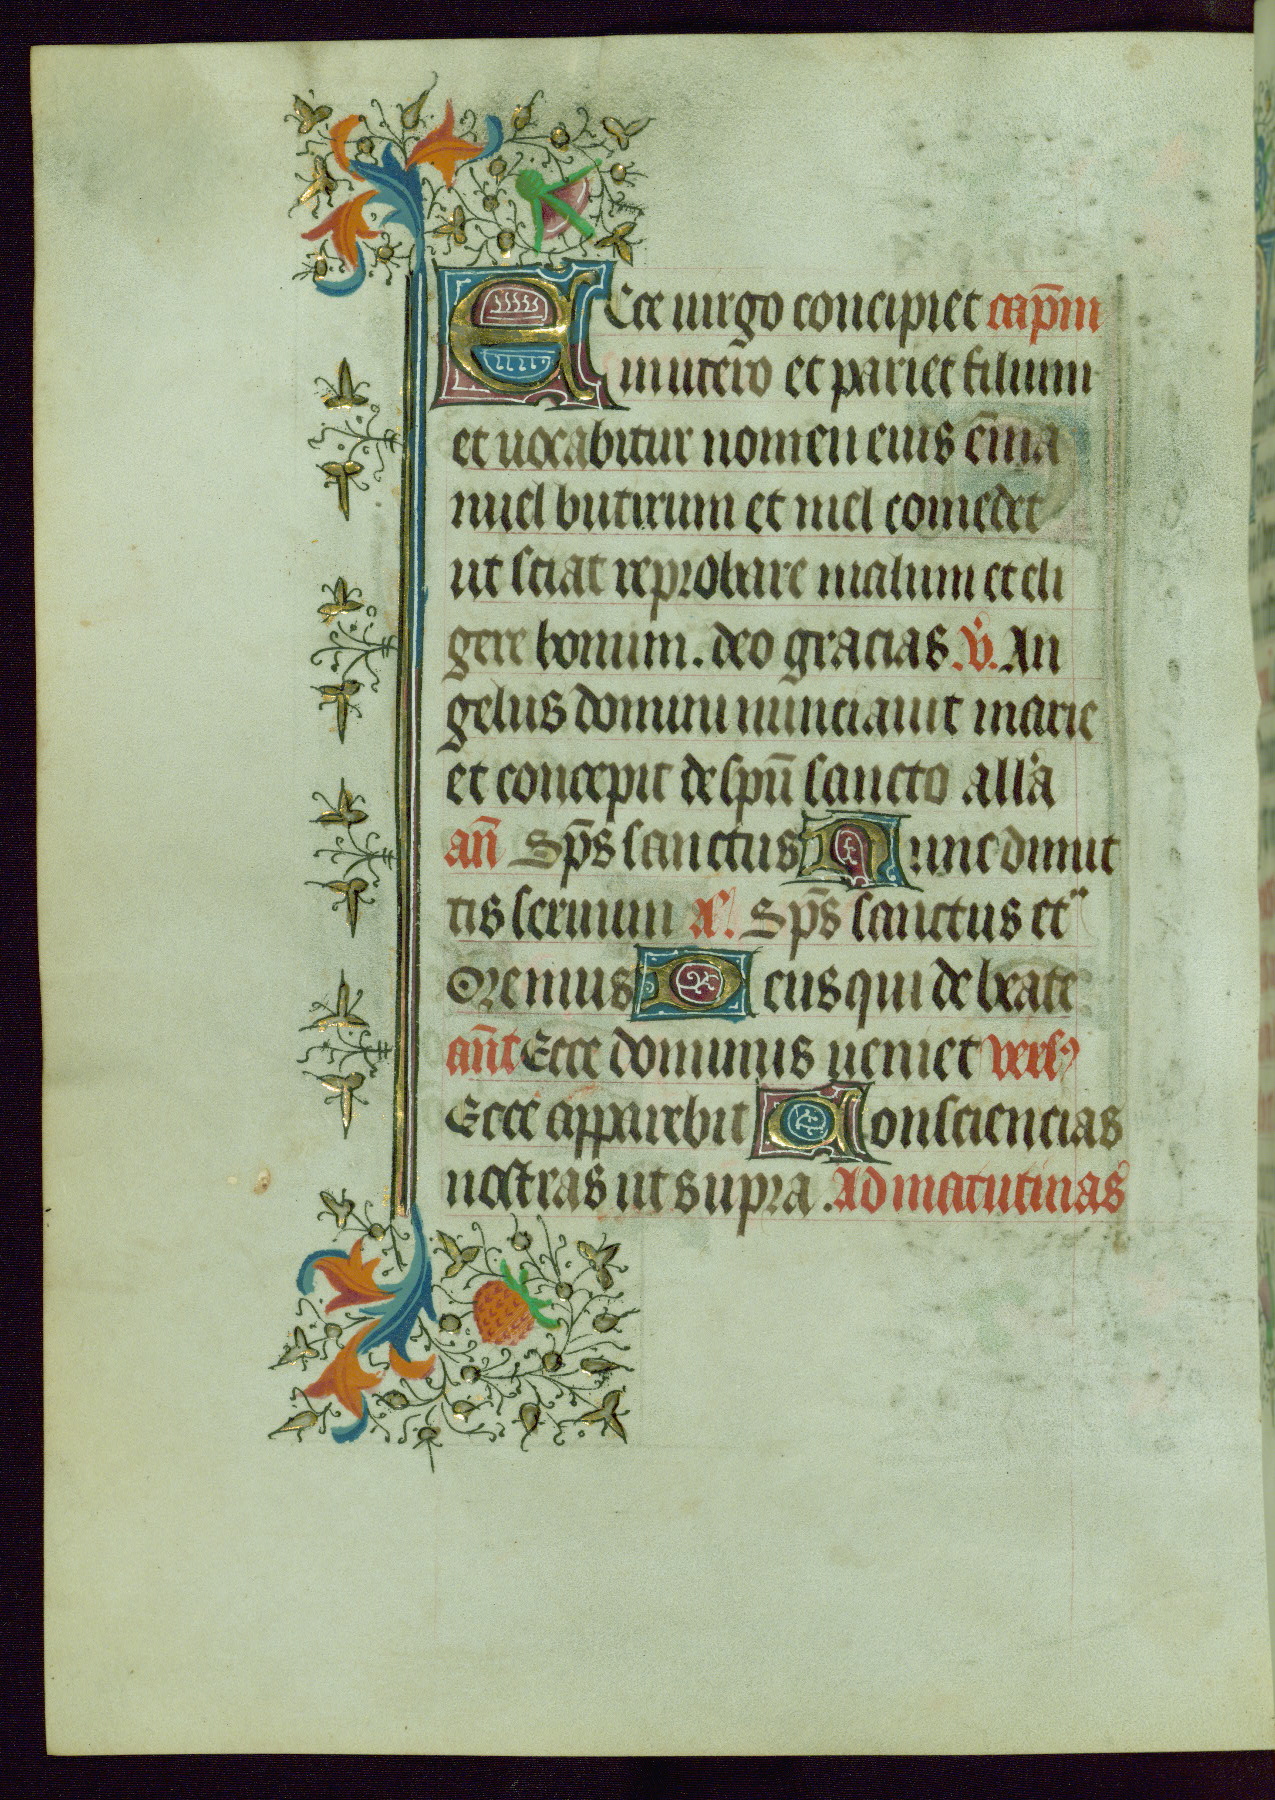 Ecce uirgo concipiet cap̄m
in utero et pariet filium
et uocabitur nomen eius ēma
nuel butirum et mel comedet
ut sciat reprobare malum et eli
gere bonum. deo gracias. V̄. An
gelus domini nunciauit marie
et concepit de spū sancto all'a
an̄ Sp̄s sanctus Nunc dimit
tis seruum a'. Sp̄s sanctus et
Oremus Deus qui de beate
an̄t Ecce dominus ueniet vers
Ecce apparebit Consciencias
nostras ut supra. Ad matutinas